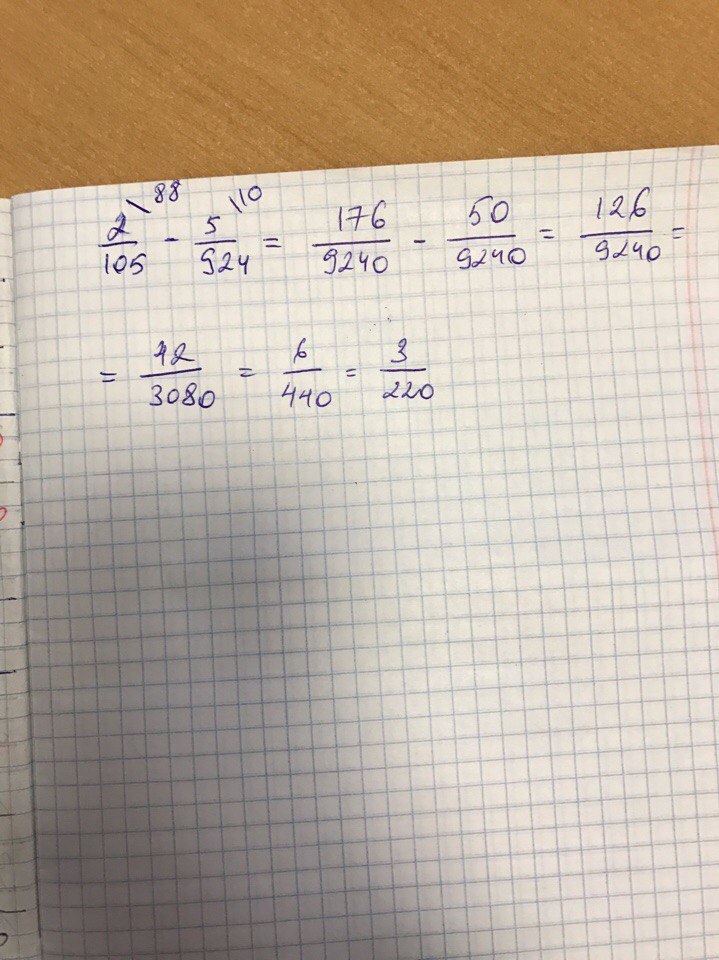 2\88/105 - 5\10/924 = 176/9240 - 50/9240 = 126/9240 =
= 42/3080 = 6/440 = 3/220